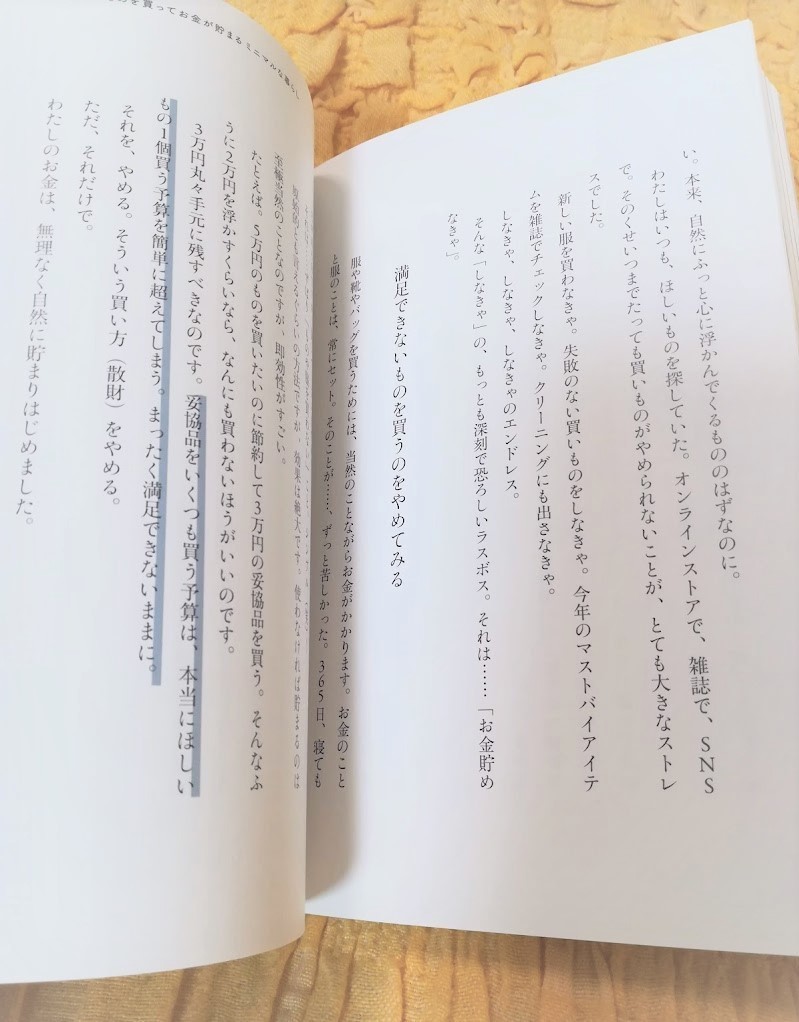 い。本来、自然にふっと心に浮かんでくるもののはずなのに。
わたしはいつも、ほしいものを探していた。オンラインストアで、雑誌で、SNS
で。そのくせいつまでたっても買いものがやめられないことが、とても大きなストレ
スでした。
新しい服を買わなきゃ。失敗のない買いものをしなきゃ。今年のマストバイアイテ
ムを雑誌でチェックしなきゃ。クリーニングにも出さなきゃ。
しなきゃ、しなきゃ、しなきゃのエンドレス。
そんな「しなきゃ」の、もっとも深刻で恐ろしいラスボス。それは……「お金貯め
なきゃ」。
満足できないものを買うのをやめてみる
服や靴やバッグを買うためには、当然のことながらお金がかかります。お金のこと
と服のことは、常にセット。そのことが……、ずっと苦しかった。365日、寝ても
のを買ってお金が貯まるミニマルな暮らし
方法ですが、効果は絶大です。使わなければ貯まるのは
至極当然のことなのですが、即効性がすごい。
たとえば。5万円のものを買いたいのに節約して3万円の妥協品を買う。そんなふ
うに2万円を浮かすくらいなら、なんにも買わないほうがいいのです。
3万円丸々手元に残すべきなのです。妥協品をいくつも買う予算は、本当にほしい
もの1個買う予算を簡単に超えてしまう。まったく満足できないままに。
それを、やめる。そういう買い方（散財）をやめる。
ただ、それだけで。
わたしのお金は、無理なく自然に貯まりはじめました。